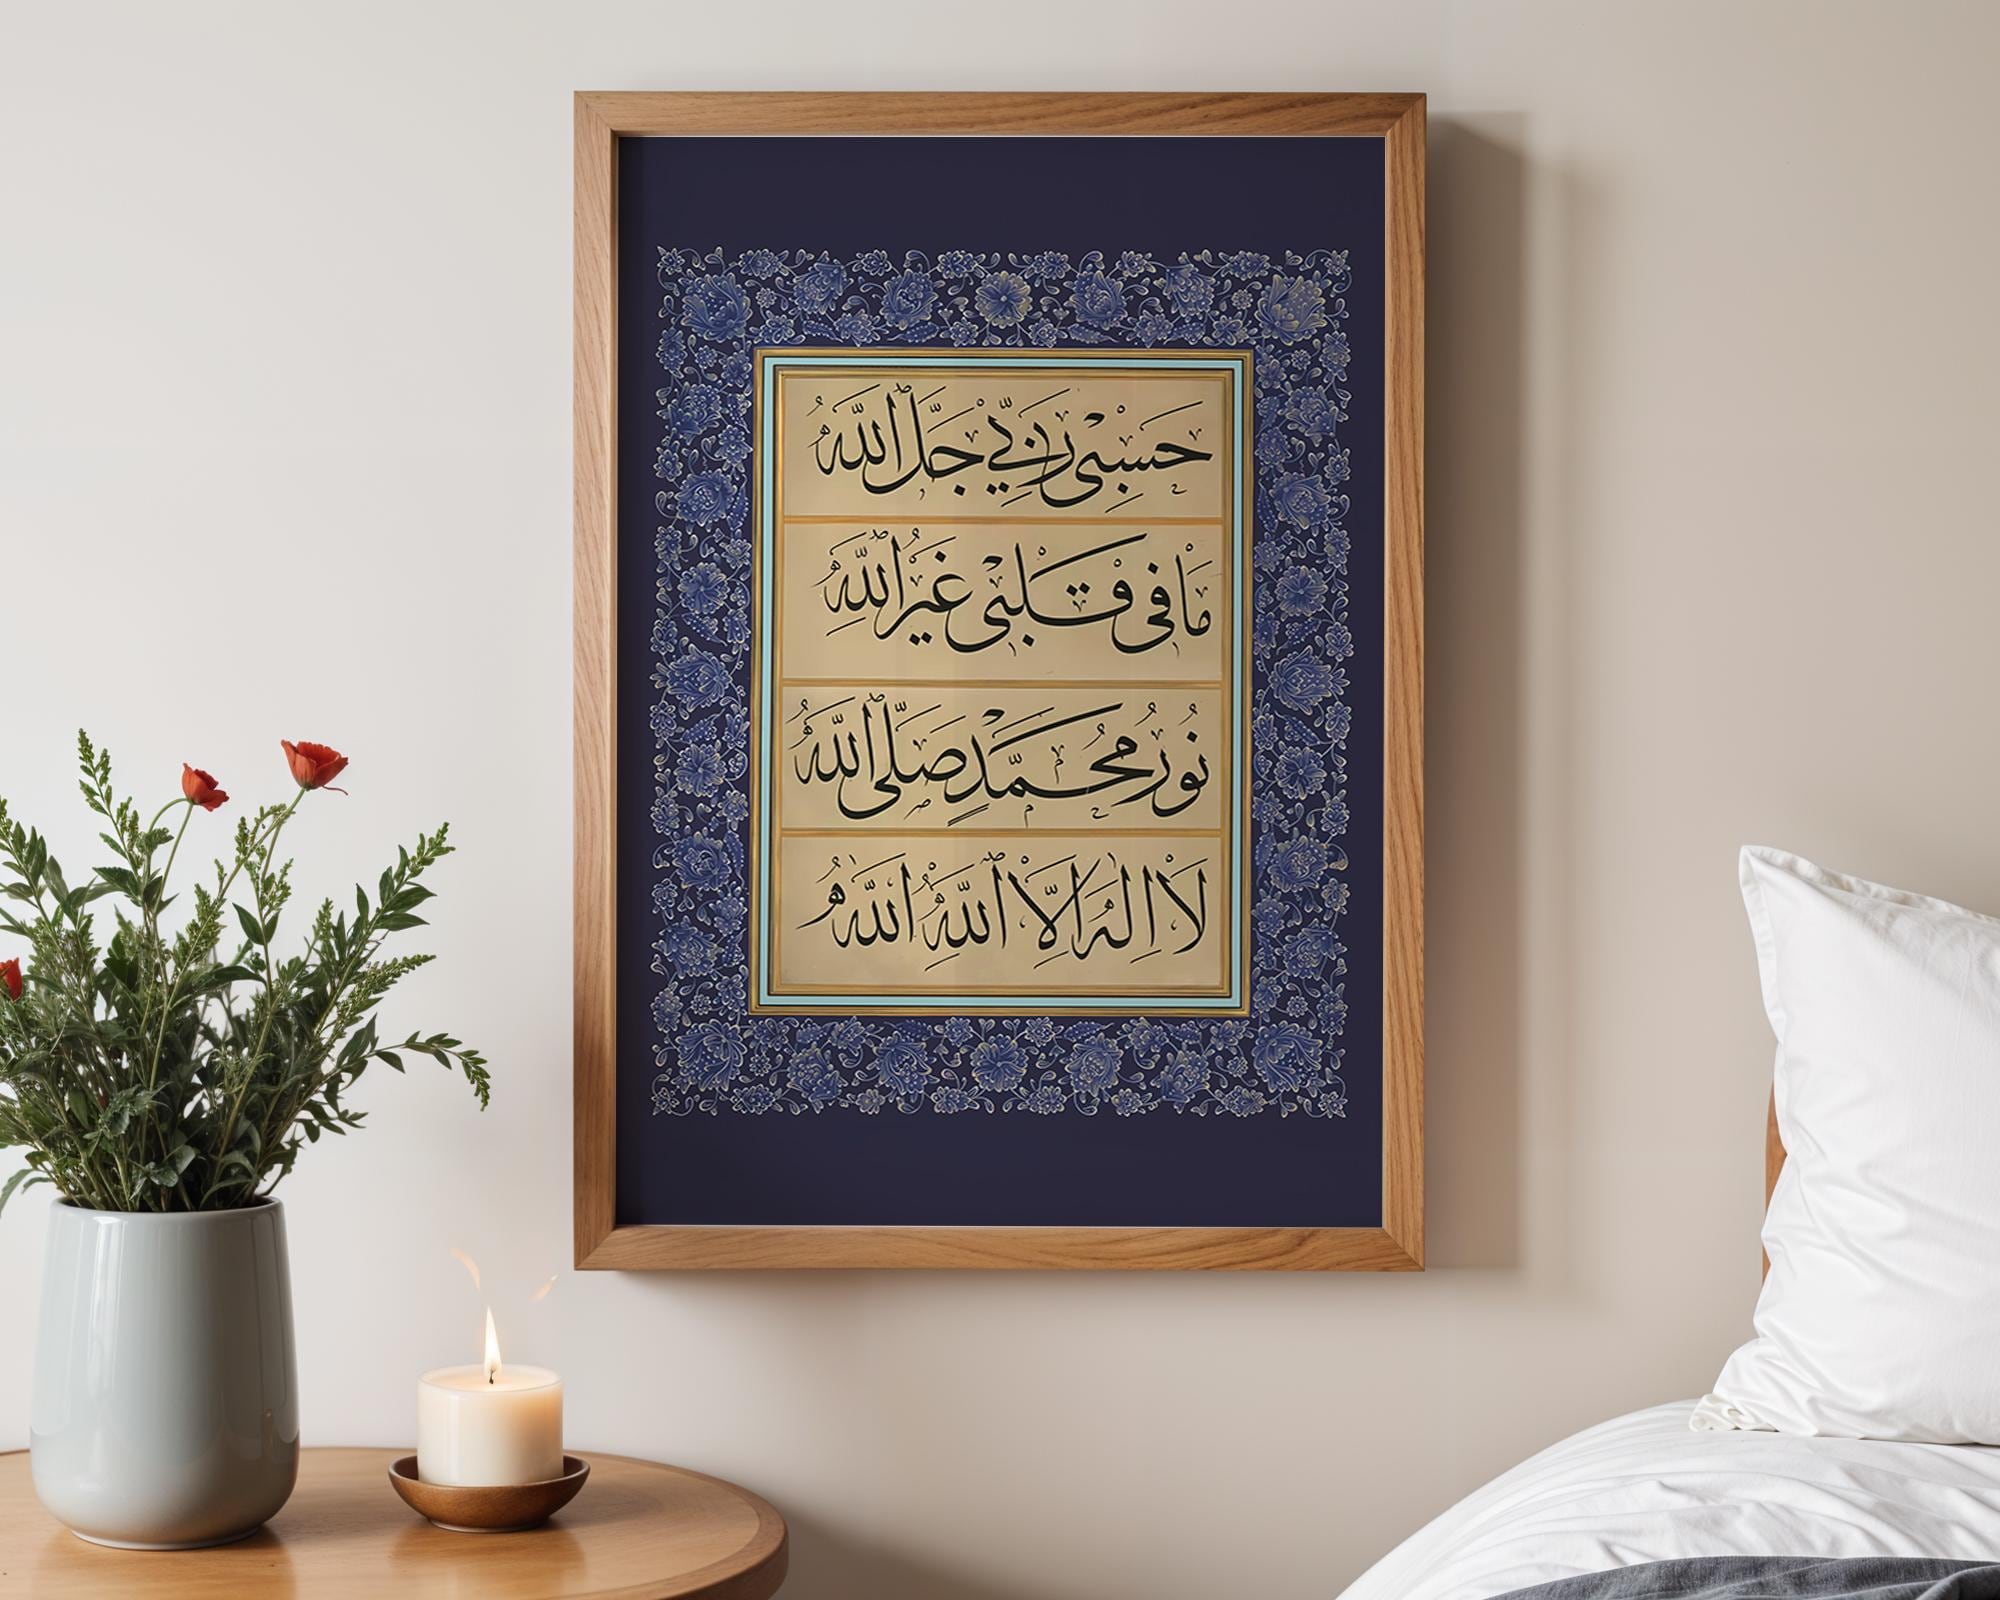 حَسْبِي رَبِّي جَلَّ اللهُ
مَا فِي قَلْبِي غَيْرُ اللهِ
نُورُ مُحَمَّدٍ صَلَّى اللهُ
لَا إِلٰهَ إِلَّا اللهُ اللهُ